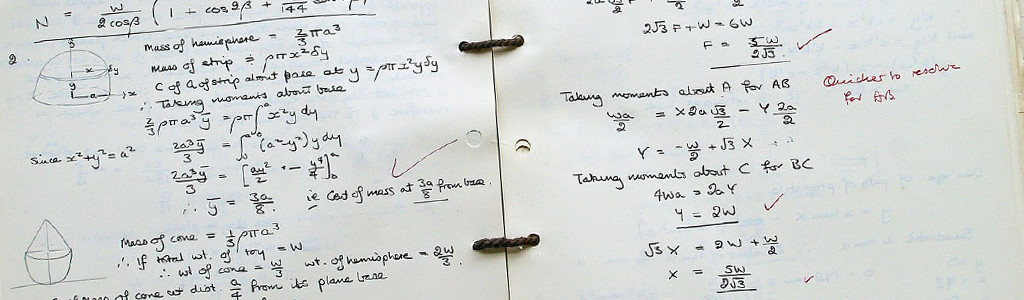 N = W/(2 cosβ) (1 + cos2β + /144
2.
Mass of hemisphere = 2/3 πa³
Mass of strip = ρπx²δy
C of G of strip about base at y = ρπx²yδy
∴ Taking moments about base
2/3 ρπa³ȳ = ρπ∫₀ᵃ x²y dy
Since x²+y²=a² 2a³ȳ/3 = ∫₀ᵃ (a²-y²)y dy
2a³ȳ/3 = [ay²/2 - y⁴/4]₀ᵃ
∴ ȳ = 3a/8. ie Cent of mass at 3a/8 from base.
Mass of cone = 1/3 ρπa³
∴ If total wt. of toy = W
∴ wt of cone = W/3 wt. of hemisphere = 2W/3.
of mass of cone at dist. a/4 from its plane base
2√3 F + W = 6W
F = 5W/2√3
Taking moments about A for AB
Wa/2 = X2a√3/2 - Y 2a/2
Y = -W/2 + √3 X
Quicker to resolve
for AB
Taking moments about C for BC
4Wa = 2aY
Y = 2W
√3 X = 2W + W/2
X = 5W/2√3